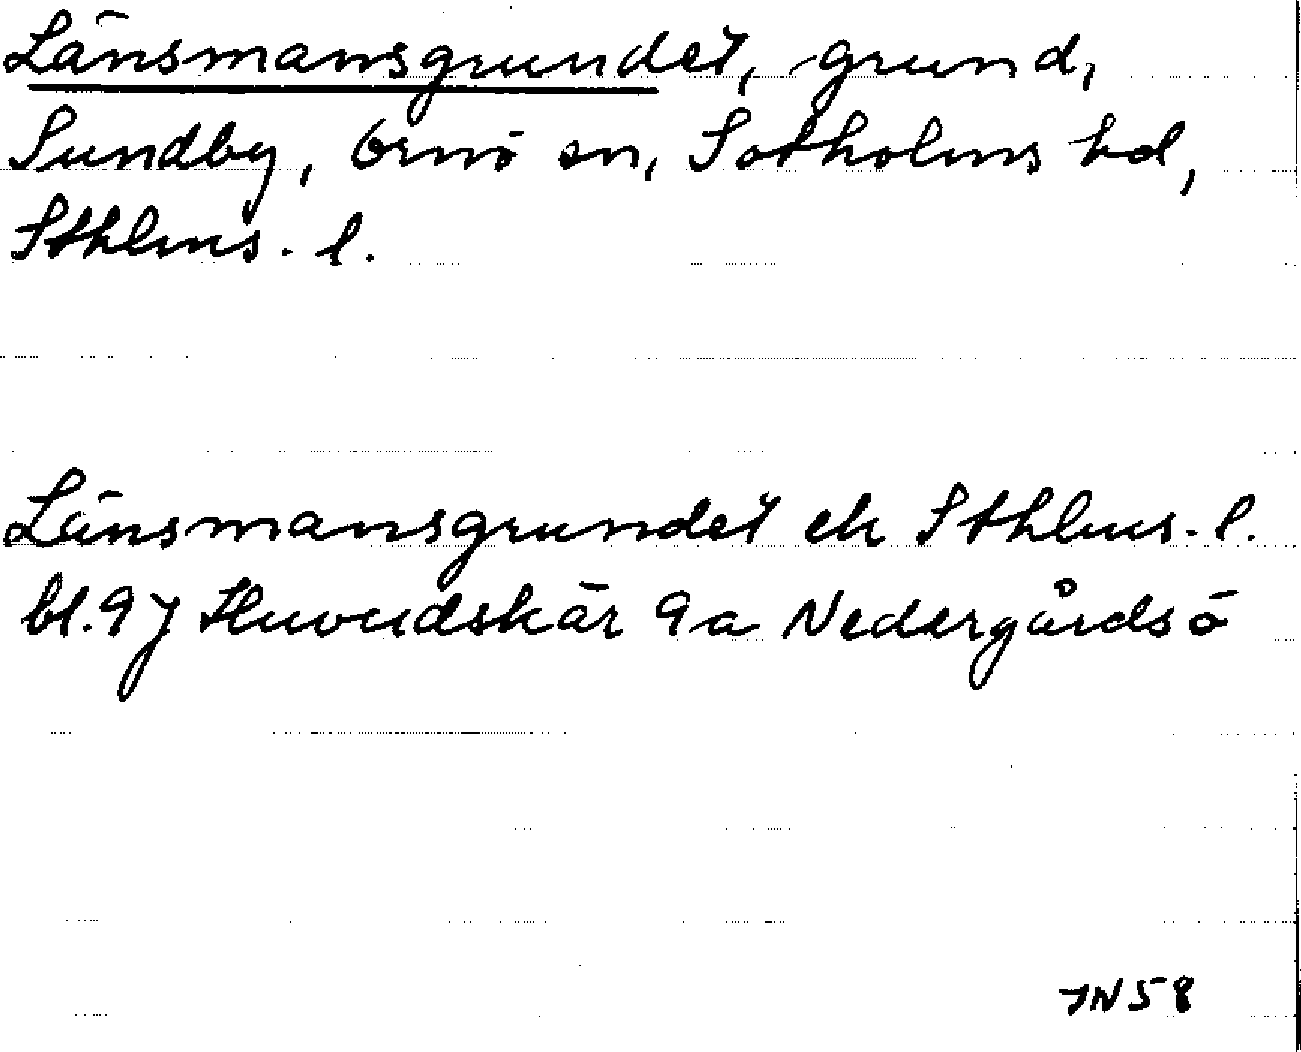 Länsmansgrundet, grund,
Sundby, Ornö sn, Sotholms hd,
Sthlms. l.
Länsmansgrundet ek Sthlms. l.
bl. 9 J Huvudskär 9a Nedergårdsö
JN 58